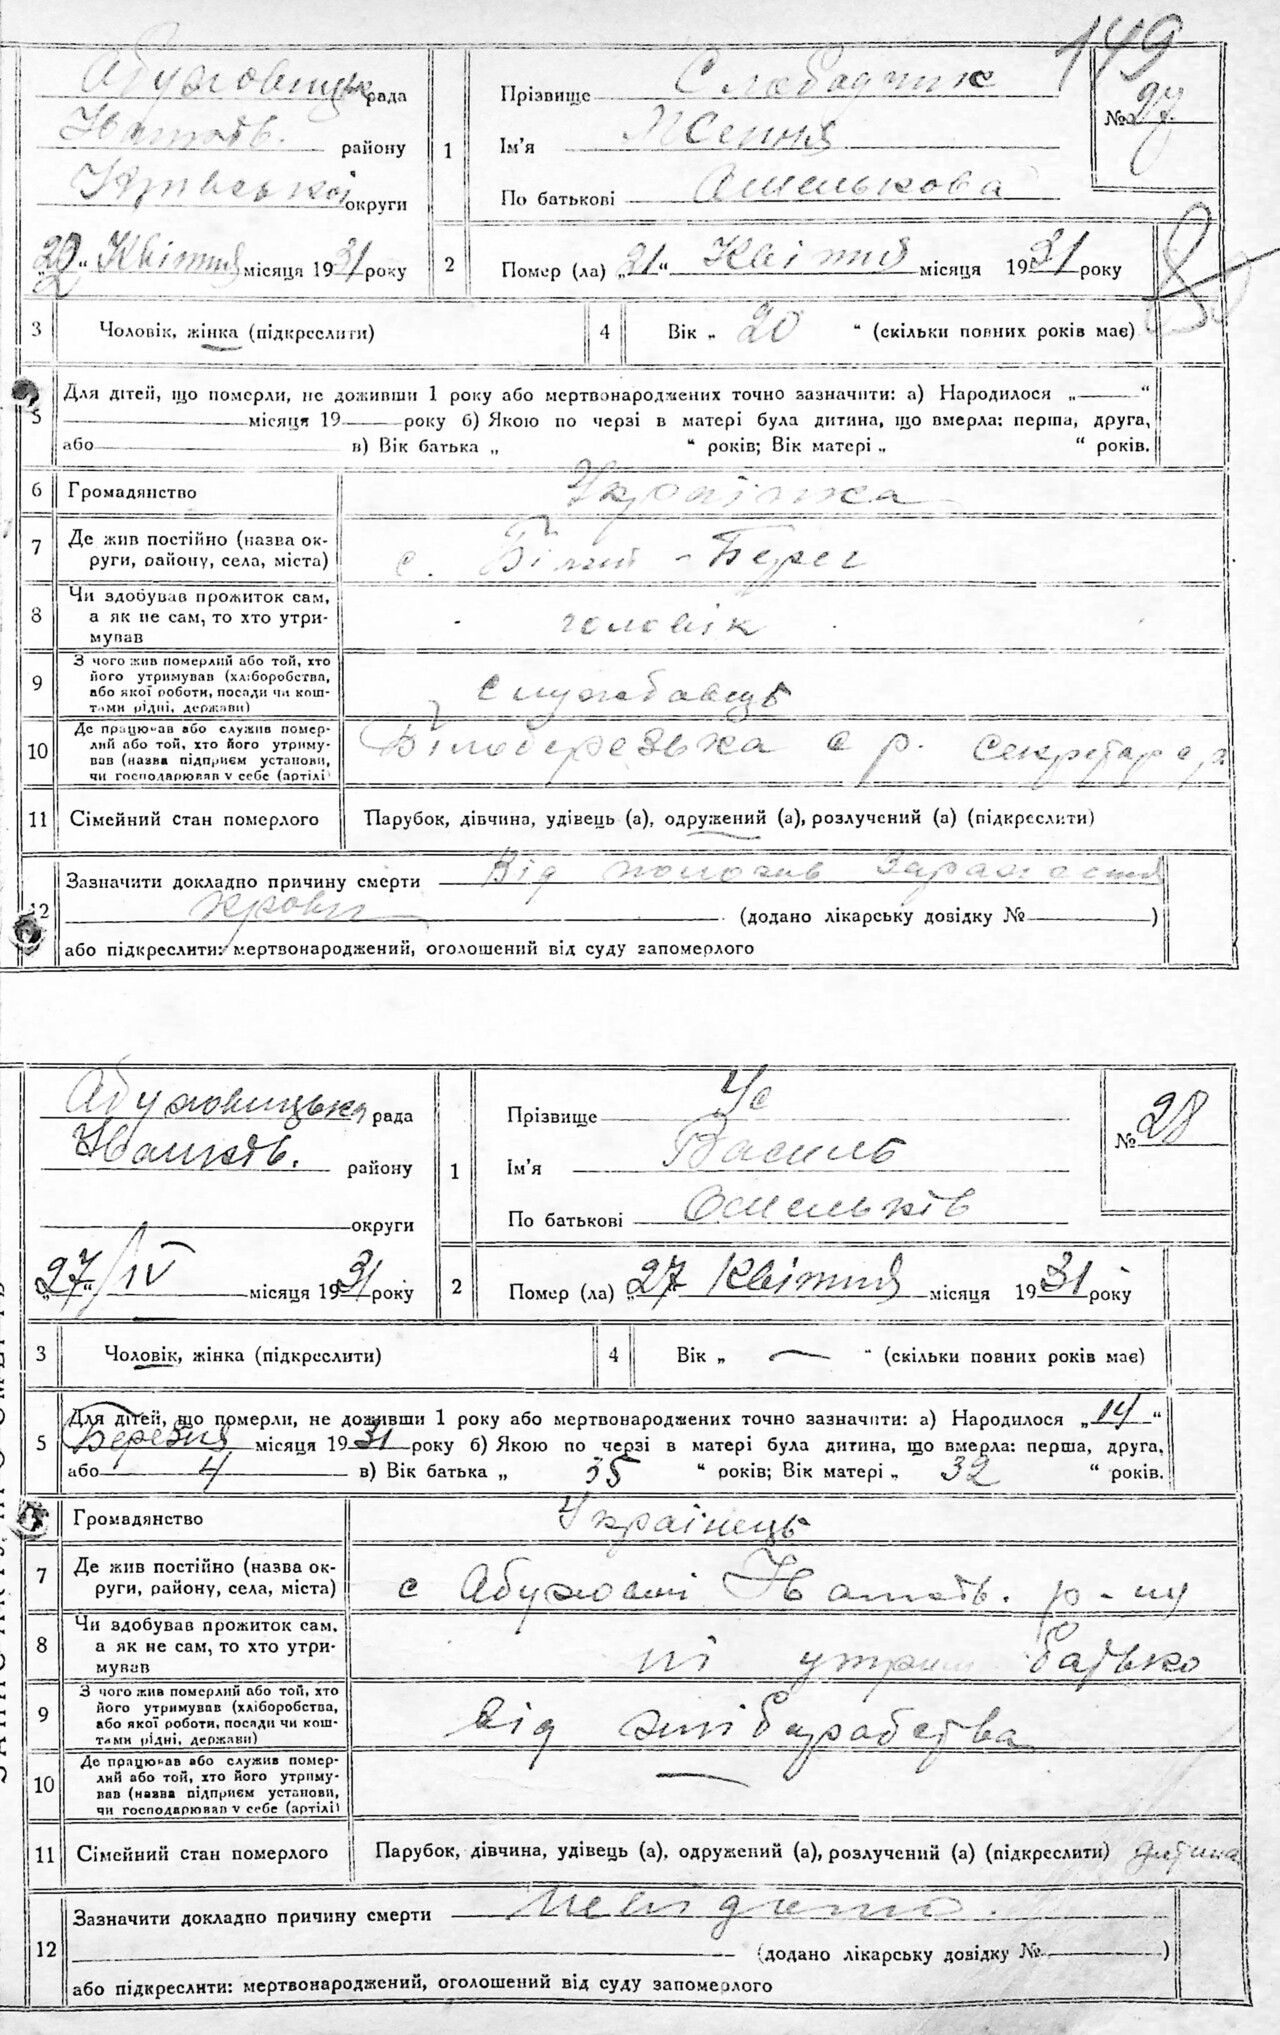 149
Абуховицька рада
Іванків. району
Київської округи
"22" Квітня місяця 1931 року
1
Прізвище Слободчик
Ім'я Ження
По батькові Омелькова
№ 27
2
Помер (ла) "21" Квітня місяця 1931 року
3 Чоловік, жінка (підкреслити)
4 Вік „ 20 “ (скільки повних років має)
5 Для дітей, що померли, не доживши 1 року або мертвонароджених точно зазначити: а) Народилося „——“
місяця 19—— року б) Якою по черзі в матері була дитина, що вмерла: перша, друга,
або в) Вік батька „ “ років; Вік матері „ “ років.
6 Громадянство Українка
7 Де жив постійно (назва ок-
руги, району, села, міста) с. Білий-Берег
8 Чи здобував прожиток сам,
а як не сам, то хто утри-
мував чоловік
9 З чого жив померлий або той, хто
його утримував (хліборобства,
або якої роботи, посади чи кош-
тами рідні, держави) службовець
10 Де працював або служив помер-
лий або той, хто його утриму-
вав (назва підприєм установи,
чи господарював у себе (артілі) Білоберезька с р. секретар
11 Сімейний стан померлого Парубок, дівчина, удівець (а), одружений (а), розлучений (а) (підкреслити)
12 Зазначити докладно причину смерти Від пологів зараження
крови (додано лікарську довідку № )
або підкреслити: мертвонароджений, оголошений від суду запомерлого
Абуховицька рада
Іванків. району
округи
"27"/IV місяця 1931 року
1
Прізвище Ус
Ім'я Василь
По батькові Омельків
№ 28
2
Помер (ла) „27“ Квітня місяця 1931 року
3 Чоловік, жінка (підкреслити)
4 Вік „ — “ (скільки повних років має)
5 Для дітей, що померли, не доживши 1 року або мертвонароджених точно зазначити: а) Народилося „14“
Березня місяця 1931 року б) Якою по черзі в матері була дитина, що вмерла: перша, друга,
або 4 в) Вік батька „ 35 “ років; Вік матері „ 32 “ років.
Громадянство Українець
7 Де жив постійно (назва ок-
руги, району, села, міста) с Абуховичі Іванків. р-ну
8 Чи здобував прожиток сам,
а як не сам, то хто утри-
мував ні утрим батько
9 З чого жив померлий або той, хто
його утримував (хліборобства,
або якої роботи, посади чи кош-
тами рідні, держави) від хліборобства
10 Де працював або служив помер-
лий або той, хто його утриму-
вав (назва підприєм установи,
чи господарював у себе (артілі) —
11 Сімейний стан померлого Парубок, дівчина, удівець (а), одружений (а), розлучений (а) (підкреслити) дитина
12 Зазначити докладно причину смерти невідомо.
(додано лікарську довідку № )
або підкреслити: мертвонароджений, оголошений від суду запомерлого